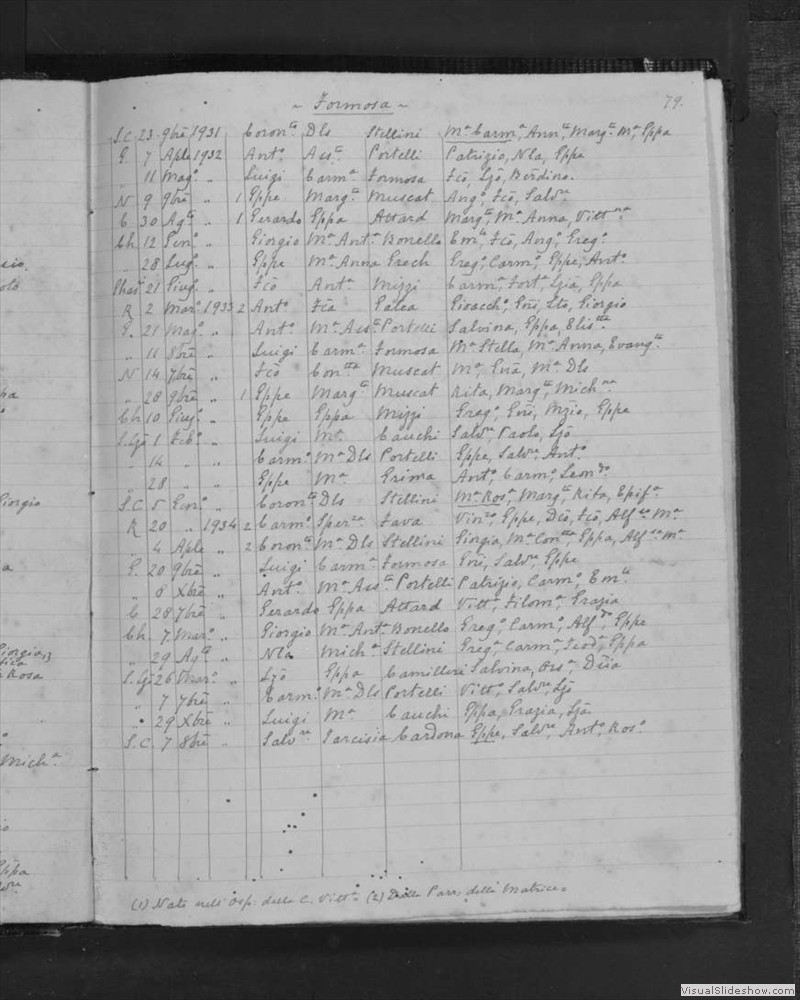 79.
~ Formosa ~
S.C. 23 9bre 1931 Coron.ta Dls Stellini Ma Carm.a Ann.ta Marg.ta Ma, Eppa
G. 7 Aple 1932 Ant.o Ass.ta Portelli Patrizio, Nla, Eppe
" 11 Mag.o " Luigi Carm.a Formosa Fco, Ljo, Berdino.
N 9 9bre " 1 Eppe Marg.ta Muscat Ang.o, Fco, Salv.re
C 30 Ag.to " 1 Gerardo Eppa Attard Marg.ta Ma Anna, Vitt.na
Ch 12 Gen.o " Giorgio Ma Ant.a Bonello Em.le, Fco, Ang.o, Greg.o
" 28 Lug.o " Eppe Ma Anna Grech Greg.o, Carm.o, Eppe, Ant.o
21 Giug.o " Fco Ant.a Mizzi Carm.a, Fort.a, Ljia, Eppa
R 2 Mar.o 1933 2 Ant.o Fca Galea Gioacch.o, Gni, Sto, Giorgio
G. 21 Mag.o " Ant.o Ma Ass.ta Portelli Salvina, Eppa, Elis.tta
" 11 8bre " Luigi Carm.a Formosa Ma Stella, Ma Anna, Evang.ta
N 14 7bre " Fco Con.tta Muscat Ma Gna, Ma Dls
" 28 9bre " 1 Eppe Marg.ta Muscat Rita, Marg.ta, Mich.na
Ch 10 Giug.o " Eppe Eppa Mizzi Greg.o, Gni, Mzio, Eppe
S.Gs 1 Feb.o " Luigi Ma Cauchi Salv.re Paolo, Ljo
" 14 " " Carm.o Ma Dls Portelli Eppe, Salv.re, Ant.o
" 28 " " Eppe Ma Grima Ant.o, Carm.o, Leon.do
S.C. 5 Gen.o " Coron.to Dls Stellini Ma Ros.a, Marg.ta, Rita, Epif.a
R 20 " 1934 2 Carm.o Sper.za Fava Vin.zo, Eppe, Fco, Alf.so Ma
" 4 Aple " 2 Coron.to Ma Dls Stellini Giorgia, Ma Con.tta, Eppa, Alf.sa Ma
G. 20 9bre " Luigi Carm.a Formosa Gni, Salv.re, Eppe
" 8 Xbre " Ant.o Ma Ass.ta Portelli Patrizio, Carm.o, Em.le
C 28 7bre " Gerardo Eppa Attard Vitt.a, Filom.a, Grazia
Ch 7 Mar.o " Giorgio Ma Ant.a Bonello Greg.o, Carm.o, Alf.do, Eppe
" 29 Ag.to " Nla Mich.a Stellini Greg.a, Carm.a, Teod.a, Eppa
S.Gs 26 Mar.o " Ljo Eppa Camilleri Salvina,
" 7 7bre " Carm.o Ma Dls Portelli Vitt.o, Salv.re, Ljo
" 29 Xbre " Luigi Ma Cauchi Eppa, Grazia, Lja
S.C. 7 8bre " Salv.re Tarcisia Cardona Eppe, Salv.re, Ant.o, Ros.o
(1) Nato nell' Osp. della C. Vitt.a (2) Dalla Parr. della Matrice.
Giorgio
Rosa
Mich.a
VisualSlideshow.com